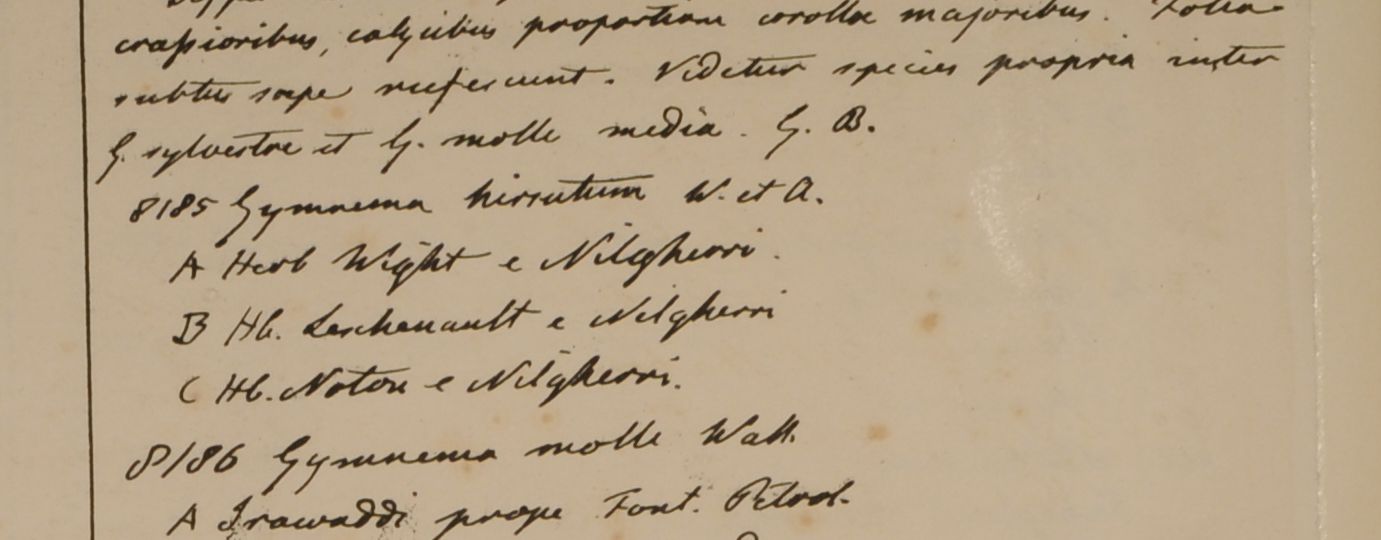 crassioribus, calycibus proportione corollae majoribus. Folia
subtus saepe rufescunt. Videtur species propria inter
G. sylvestre et G. molle media. G. B.
8185 Gymnema hirsutum W. et A.
A Herb Wight e Nilgherri.
B Hb. Leschenault e Nilgherri
C Hb. Noton e Nilgherri.
8186 Gymnema molle Wall.
A Irawaddi prope Font. Petrol.